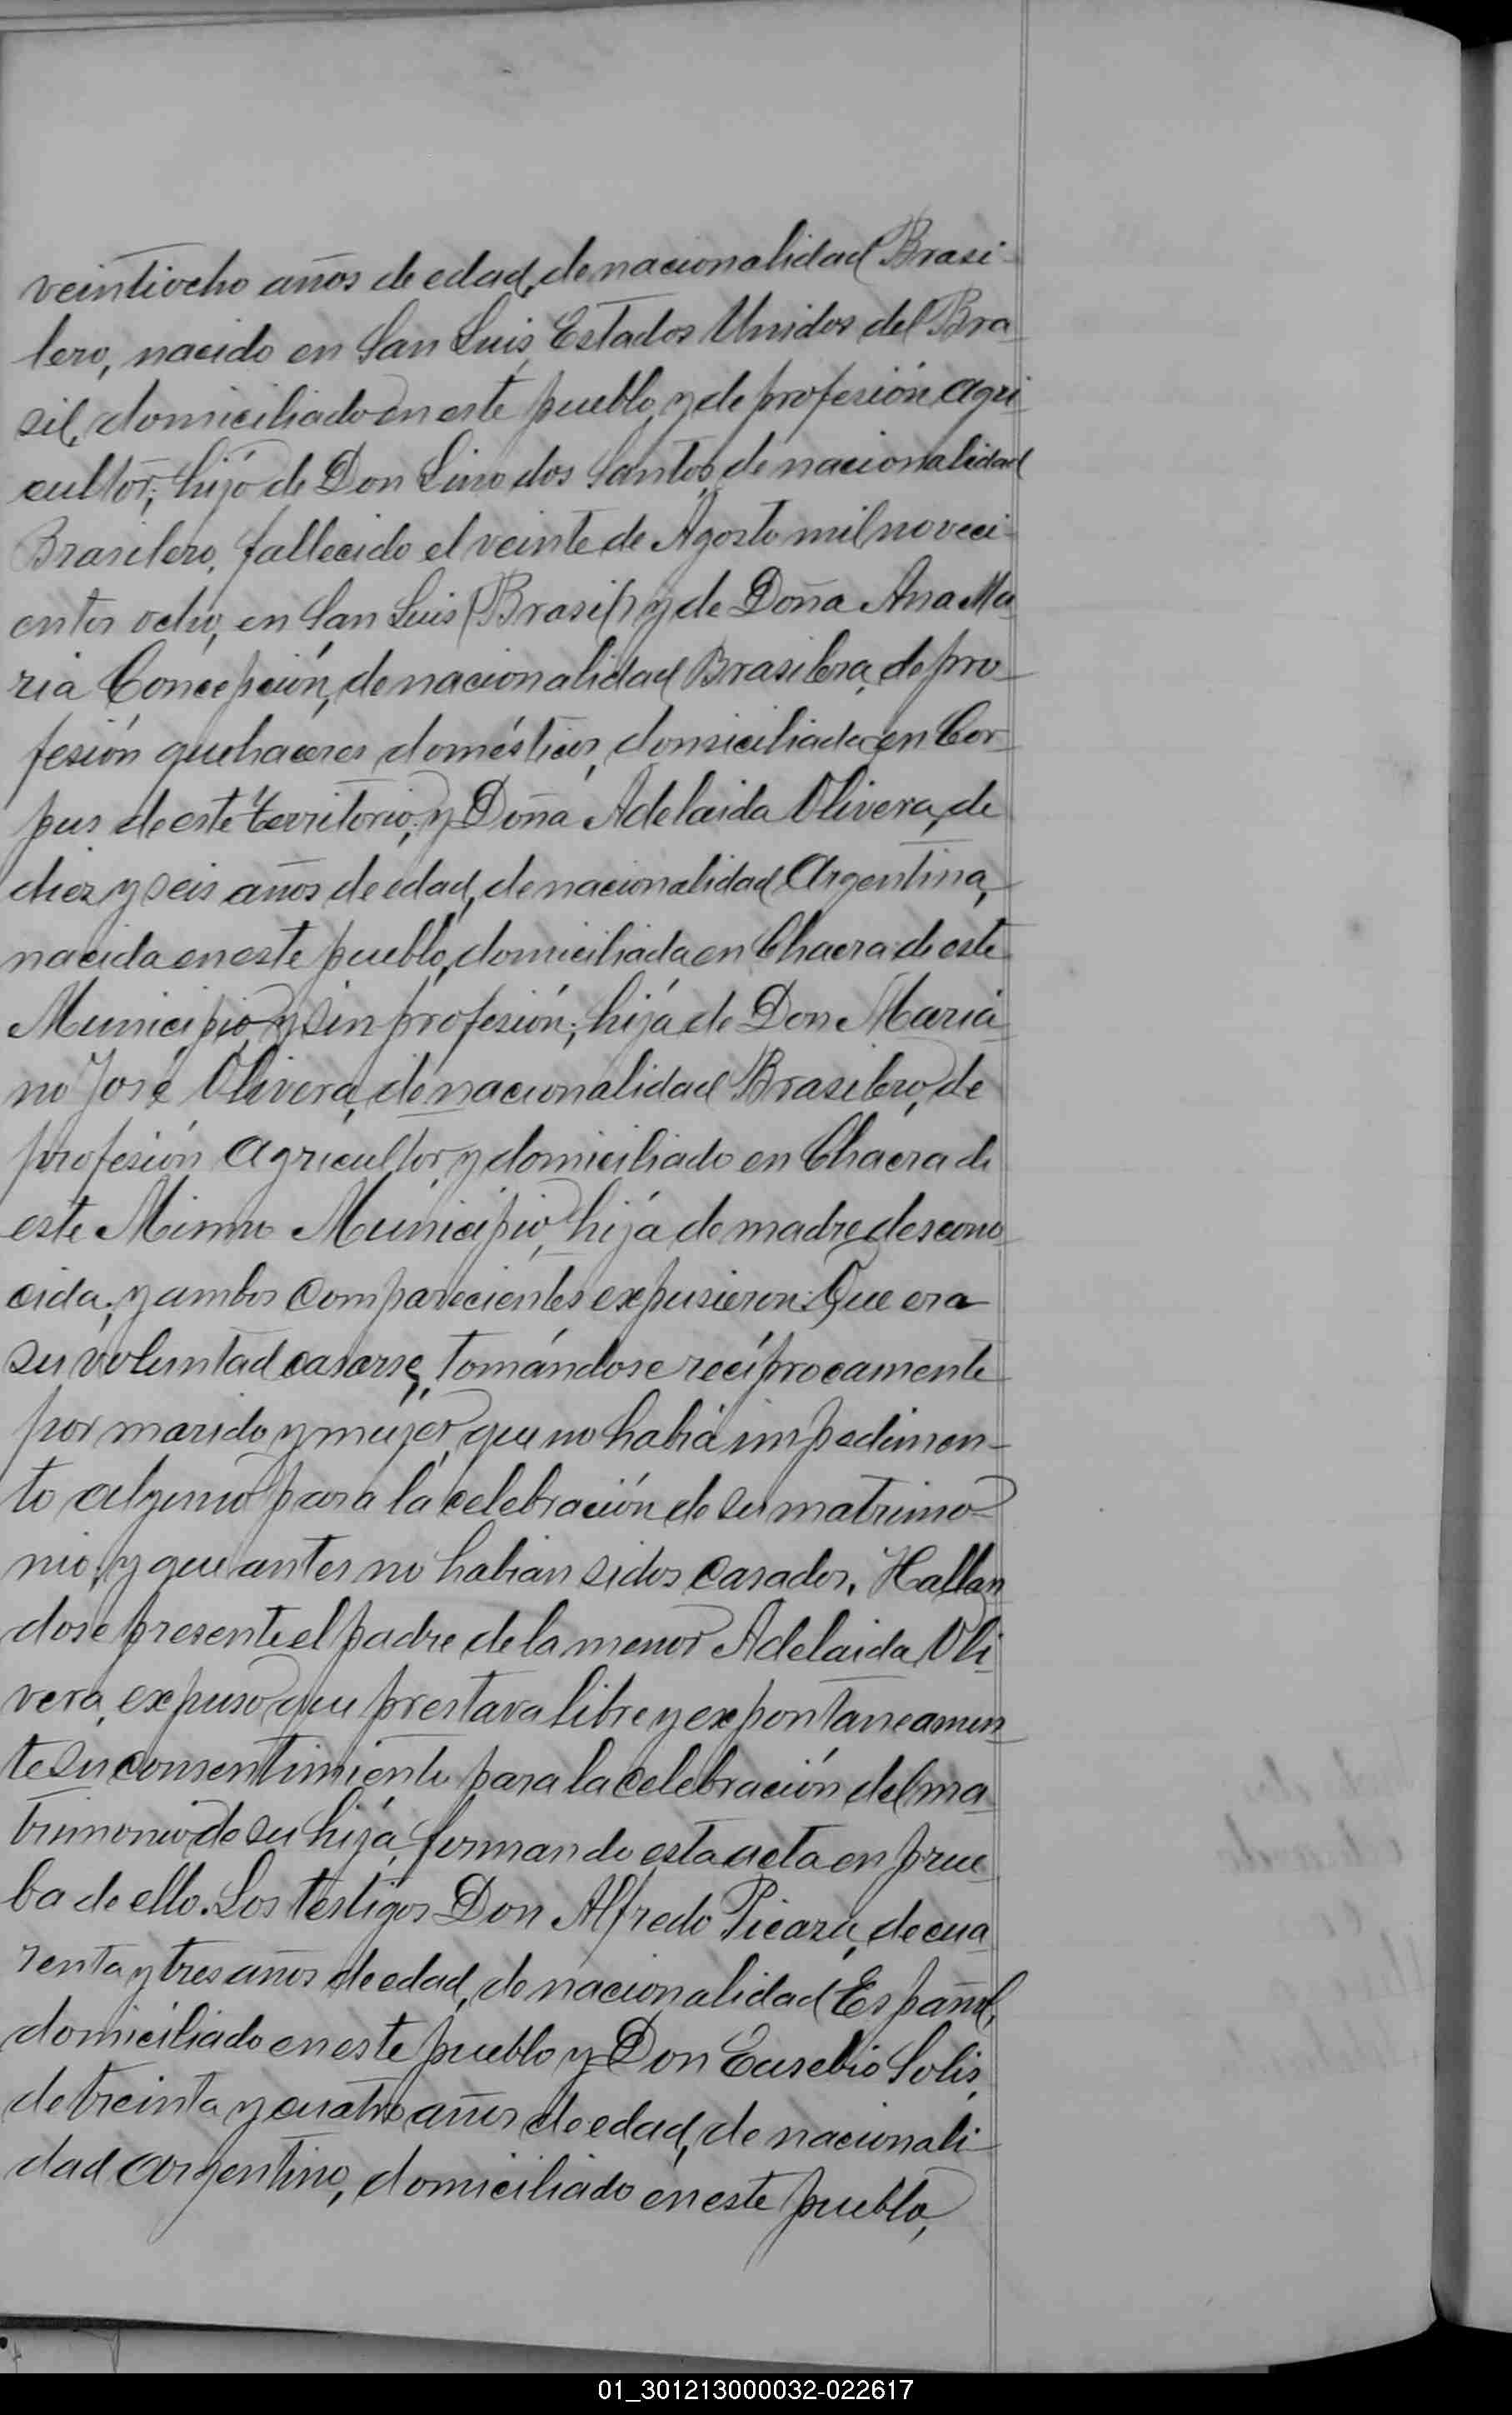 veintiocho años de edad, de nacionalidad Brasi-
lero, nacido en San Luis, Estados Unidos del Bra-
sil, domiciliado en este pueblo, y de profesión agri-
cultor; hijo de Don Lino dos Santos, de nacionalidad
Brasilero, fallecido el veinte de Agosto mil noveci-
entos ocho, en San Luis (Brasil) y de Doña Ana Ma-
ria Concepción, de nacionalidad Brasilera, de pro-
fesión quehaceres domésticos, domiciliada en Cor-
pus de este territorio; y Doña Adelaida Olivera, de
diez y seis años de edad, de nacionalidad Argentina,
nacida en este pueblo, domiciliada en Chacra de este
Municipio, y sin profesión; hija de Don Maria-
no José Olivera, de nacionalidad Brasilero, de
profesión agricultor, y domiciliado en Chacra de
este Mismo Municipio, hija de madre descono-
cida; y ambos comparecientes expusieron: Que era
su voluntad casarse, tomándose recíprocamente
por marido y mujer, que no había impedimen-
to alguno para la celebración de su matrimo-
nio; y que antes no habian sidos casados. Hallan
dose presente el padre de la menor Adelaida Oli-
vera, expuso que prestava libre y expontaneamen-
te su consentimiento para la celebración del ma-
trimonio de su hija, formando esta acta en prue-
ba de ello. Los testigos Don Alfredo Picazu, de cua-
renta y tres años de edad, de nacionalidad Español,
domiciliado en este pueblo y Don Eusebio Solis,
de treinta y cuatro años de edad, de nacionali-
dad argentino, domiciliado en este pueblo,
01_301213000032-022617